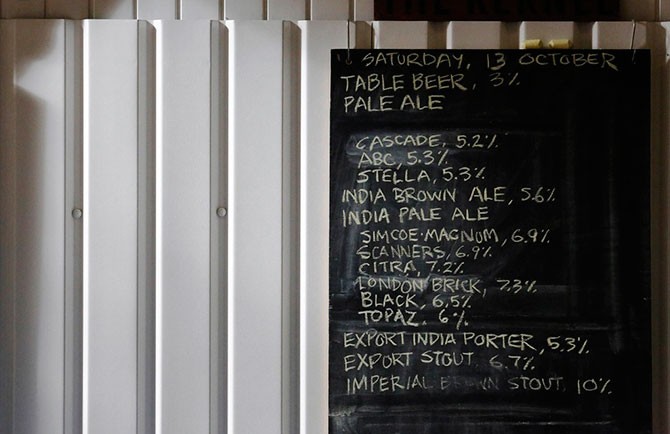 THE KERNEL
SATURDAY, 13 OCTOBER
TABLE BEER, 3%
PALE ALE
CASCADE, 5.2%
ABC, 5.3%
STELLA, 5.3%
INDIA BROWN ALE, 5.6%
INDIA PALE ALE
SIMCOE·MAGNUM, 6.9%
SCANNERS, 6.9%
CITRA, 7.2%
LONDON BRICK, 7.3%
BLACK, 6.5%
TOPAZ, 6%
EXPORT INDIA PORTER, 5.3%
EXPORT STOUT 6.7%
IMPERIAL BROWN STOUT 10%